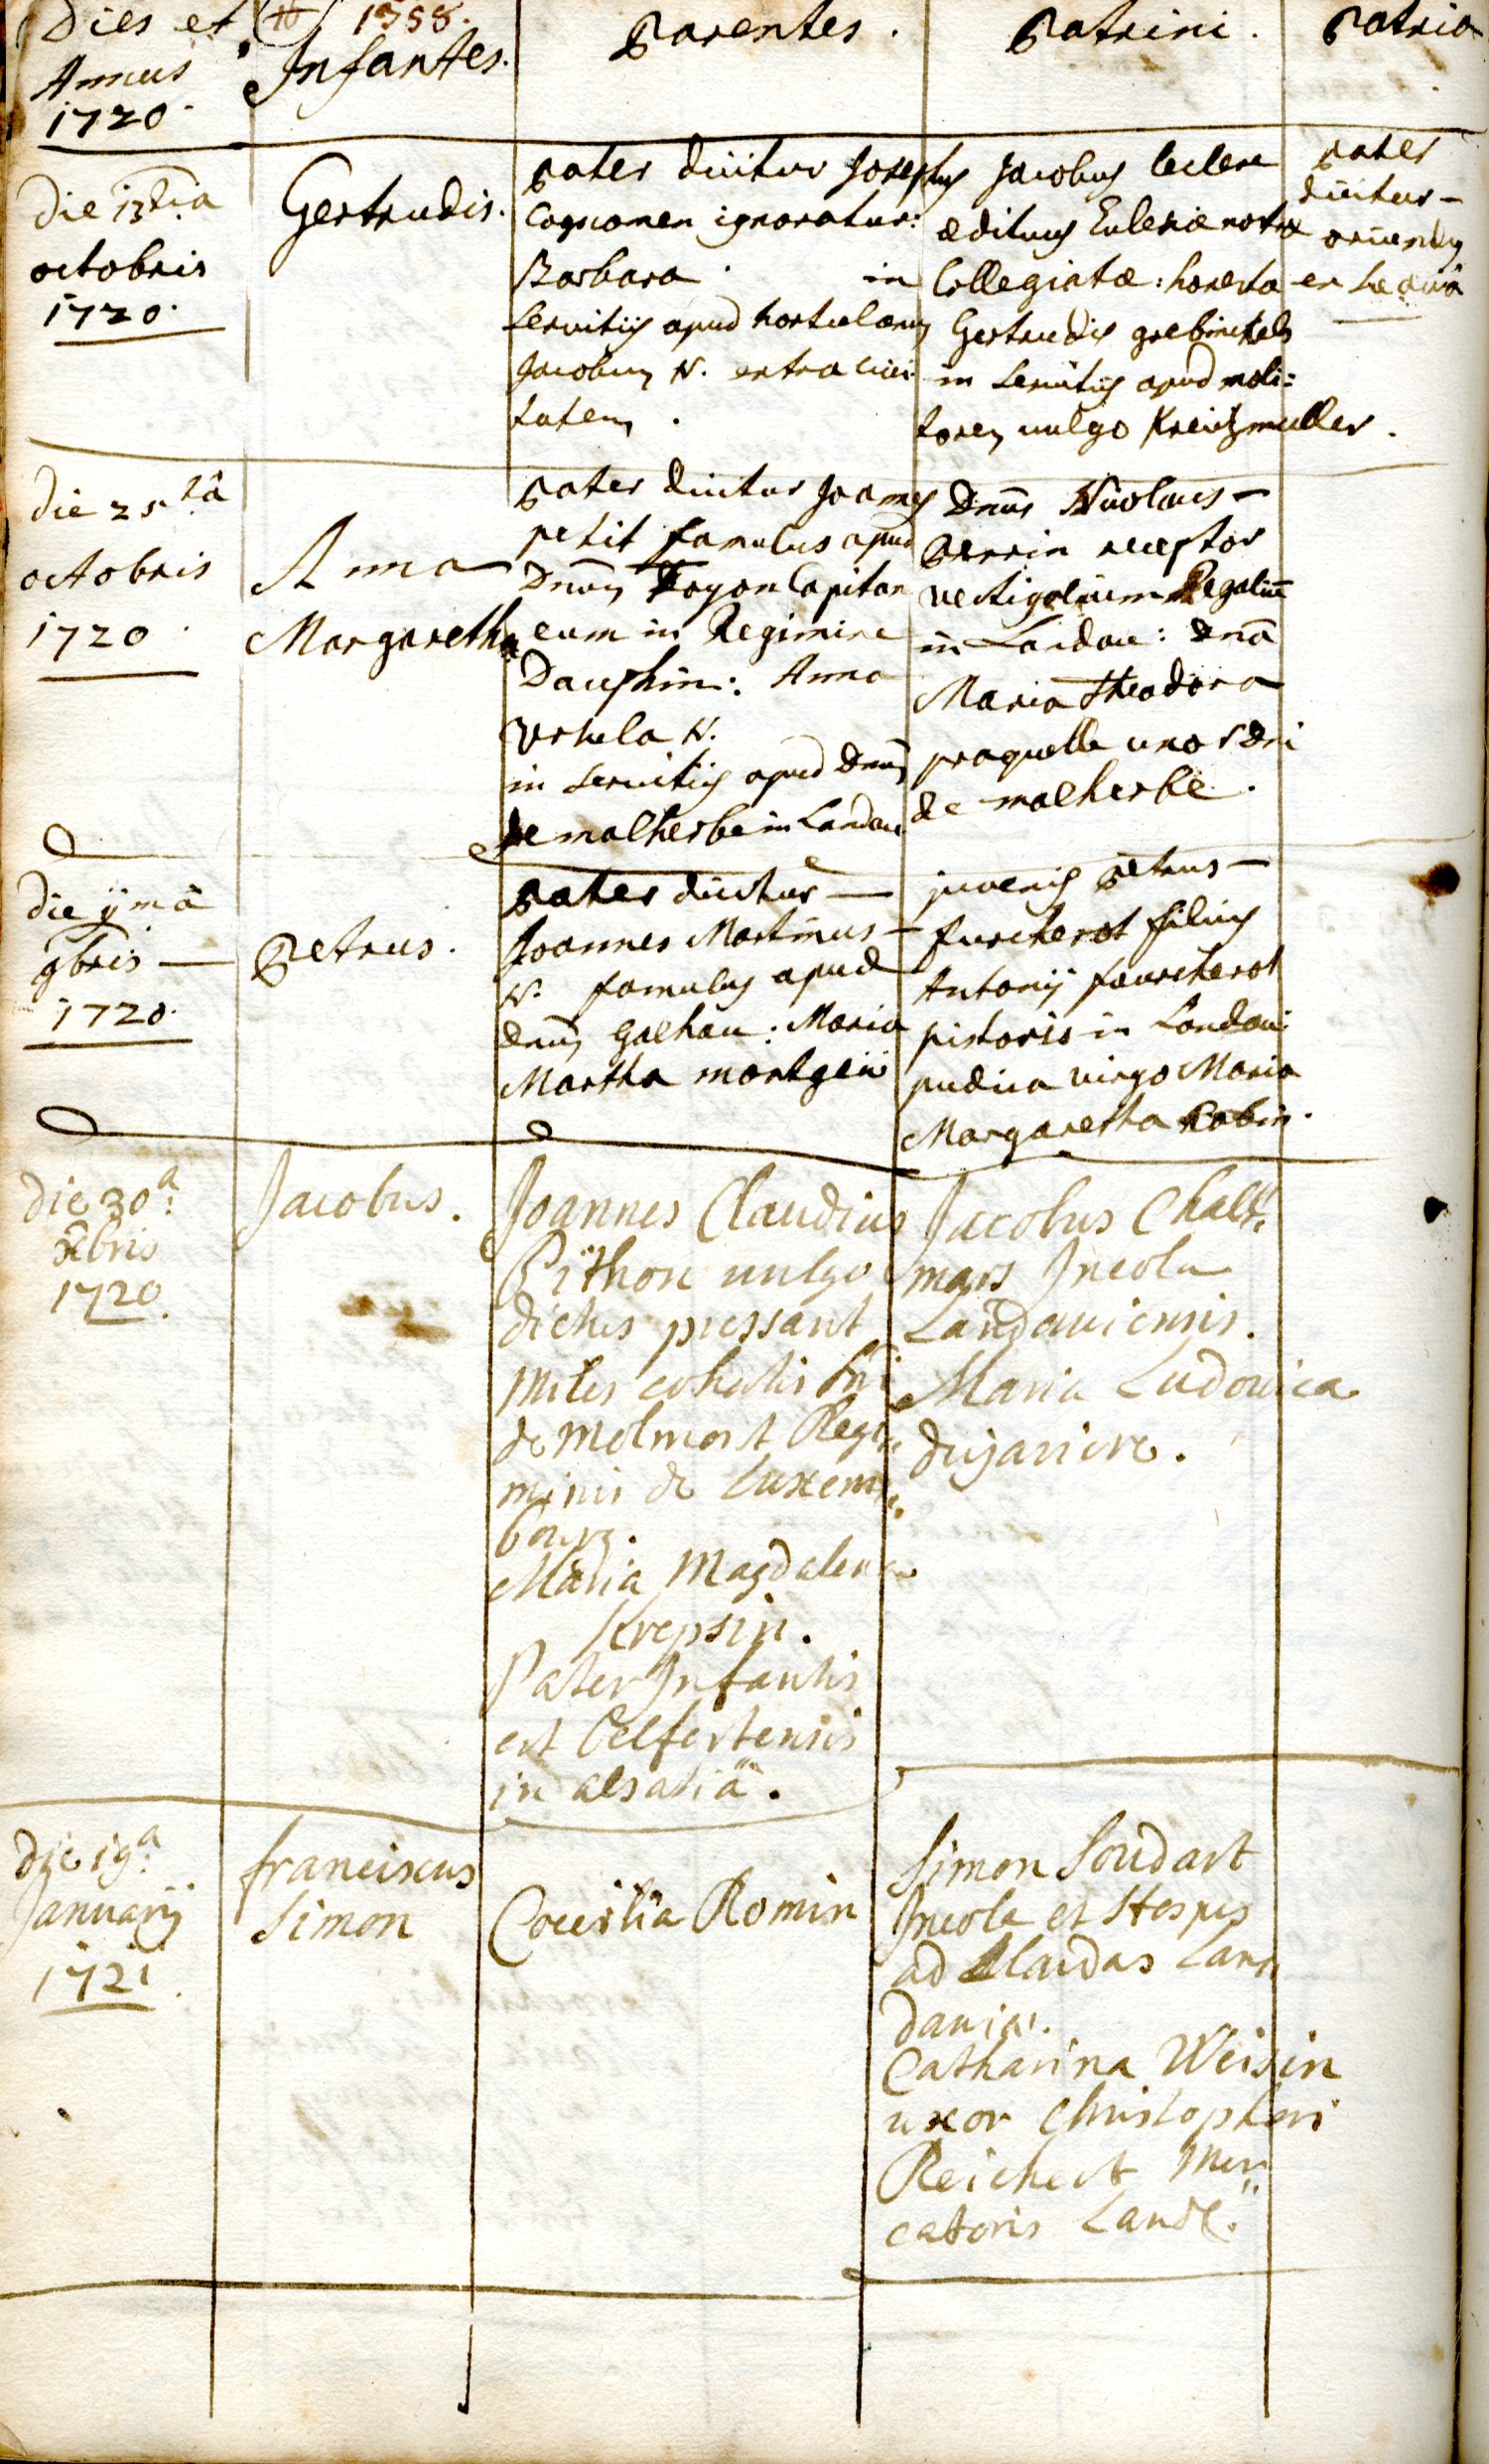 Dies et
Annus
1720.
1758.
Infantes.
Parentes.
Patrini.
Patria
die 13tia
octobris
1720.
Gertrudis.
pater dicitur Josephus
Cognomen ignoratur:
Barbara in
servitijs apud hortulanum
Jacobum N. extra civi
tatem.
Jacobus leclere
ædituus Eclesiæ nostræ
Collegiatæ: honesta
Gertrudis
in servitijs apud moli:
torem vulgo Kreitzmuller.
pater
dicitur
oriundus
ex
die 25tâ
octobris
1720.
Anna
Margaretha
pater dicitur Joannes
petit famulus apud
Dnum Capitan
eum in Regimine
Dauphin: Anna
Ursula N.
in servitijs apud Dnum
de malherbe in Landau
Dnus Nicolaus
perrin receptor
vectigalium Regalium
in Landau: Dna
Maria Theodora
praquelle uxor Dni
de malherbe.
die ijmâ
9bris
1720.
Petrus.
pater dicitur
Joannes Martinus
N. famulus apud
Dnum Galhau: Maria
Martha
juvenis petrus
furcterot filius
Antonij fourcterot
pistoris in Landau:
pudica virgo Maria
Margaretha Robin.
die 30a:
xbris
1720.
Jacobus.
Joannes Claudius
Pithon vulgo
dictus pressant
miles cohortis Dni
de Molmort Regi,,
minis de Luxem,,
bourg.
Maria Magdalena
Krepsin.
Pater Infantis
est Belfortensis
in alsatiâ.
Jacobus Chall,,
mars Incola
Landaviensis.
Maria Ludovica
dujariere.
die 19a:
Januarij
1721.
franciscus
Simon
Coecilia Romin
Simon Soudart
Incola et Hospes
ad Lan,,
daviæ.
Catharina Weisin
uxor Christopheri
Reichert Mer,,
catoris Land.